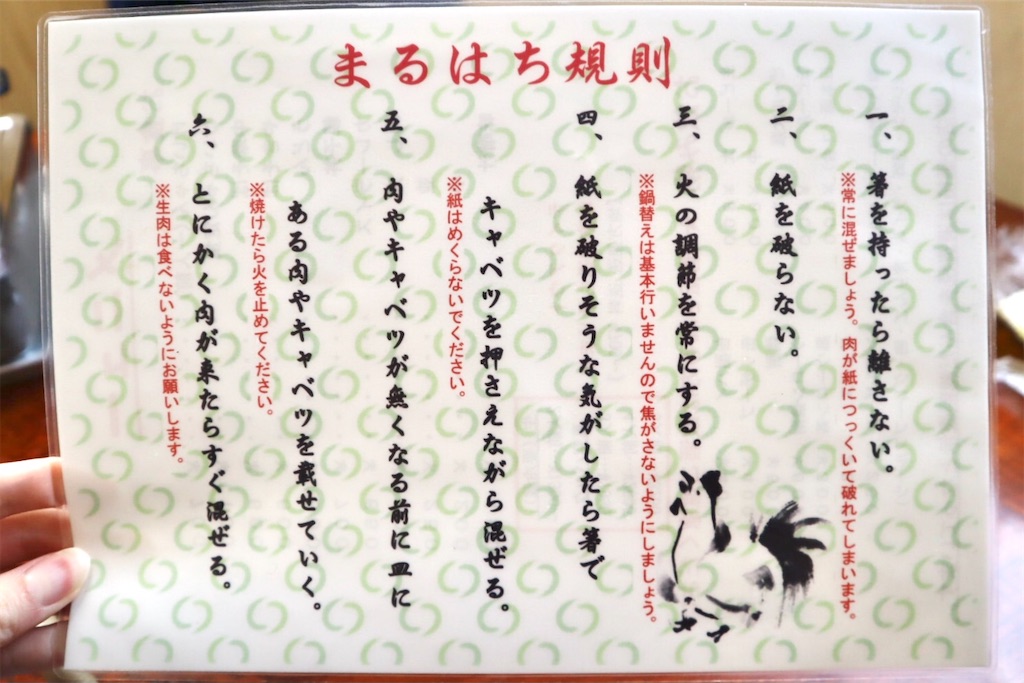 まるはち規則
一、箸を持ったら離さない。
※常に混ぜましょう。肉が紙につっくいて破れてしまいます。
二、紙を破らない。
三、火の調節を常にする。
※鍋替えは基本行いませんので焦がさないようにしましょう。
四、紙を破りそうな気がしたら箸で
キャベツを押さえながら混ぜる。
※紙はめくらないでください。
五、肉やキャベツが無くなる前に皿に
ある肉やキャベツを載せていく。
※焼けたら火を止めてください。
六、とにかく肉が来たらすぐ混ぜる。
※生肉は食べないようにお願いします。